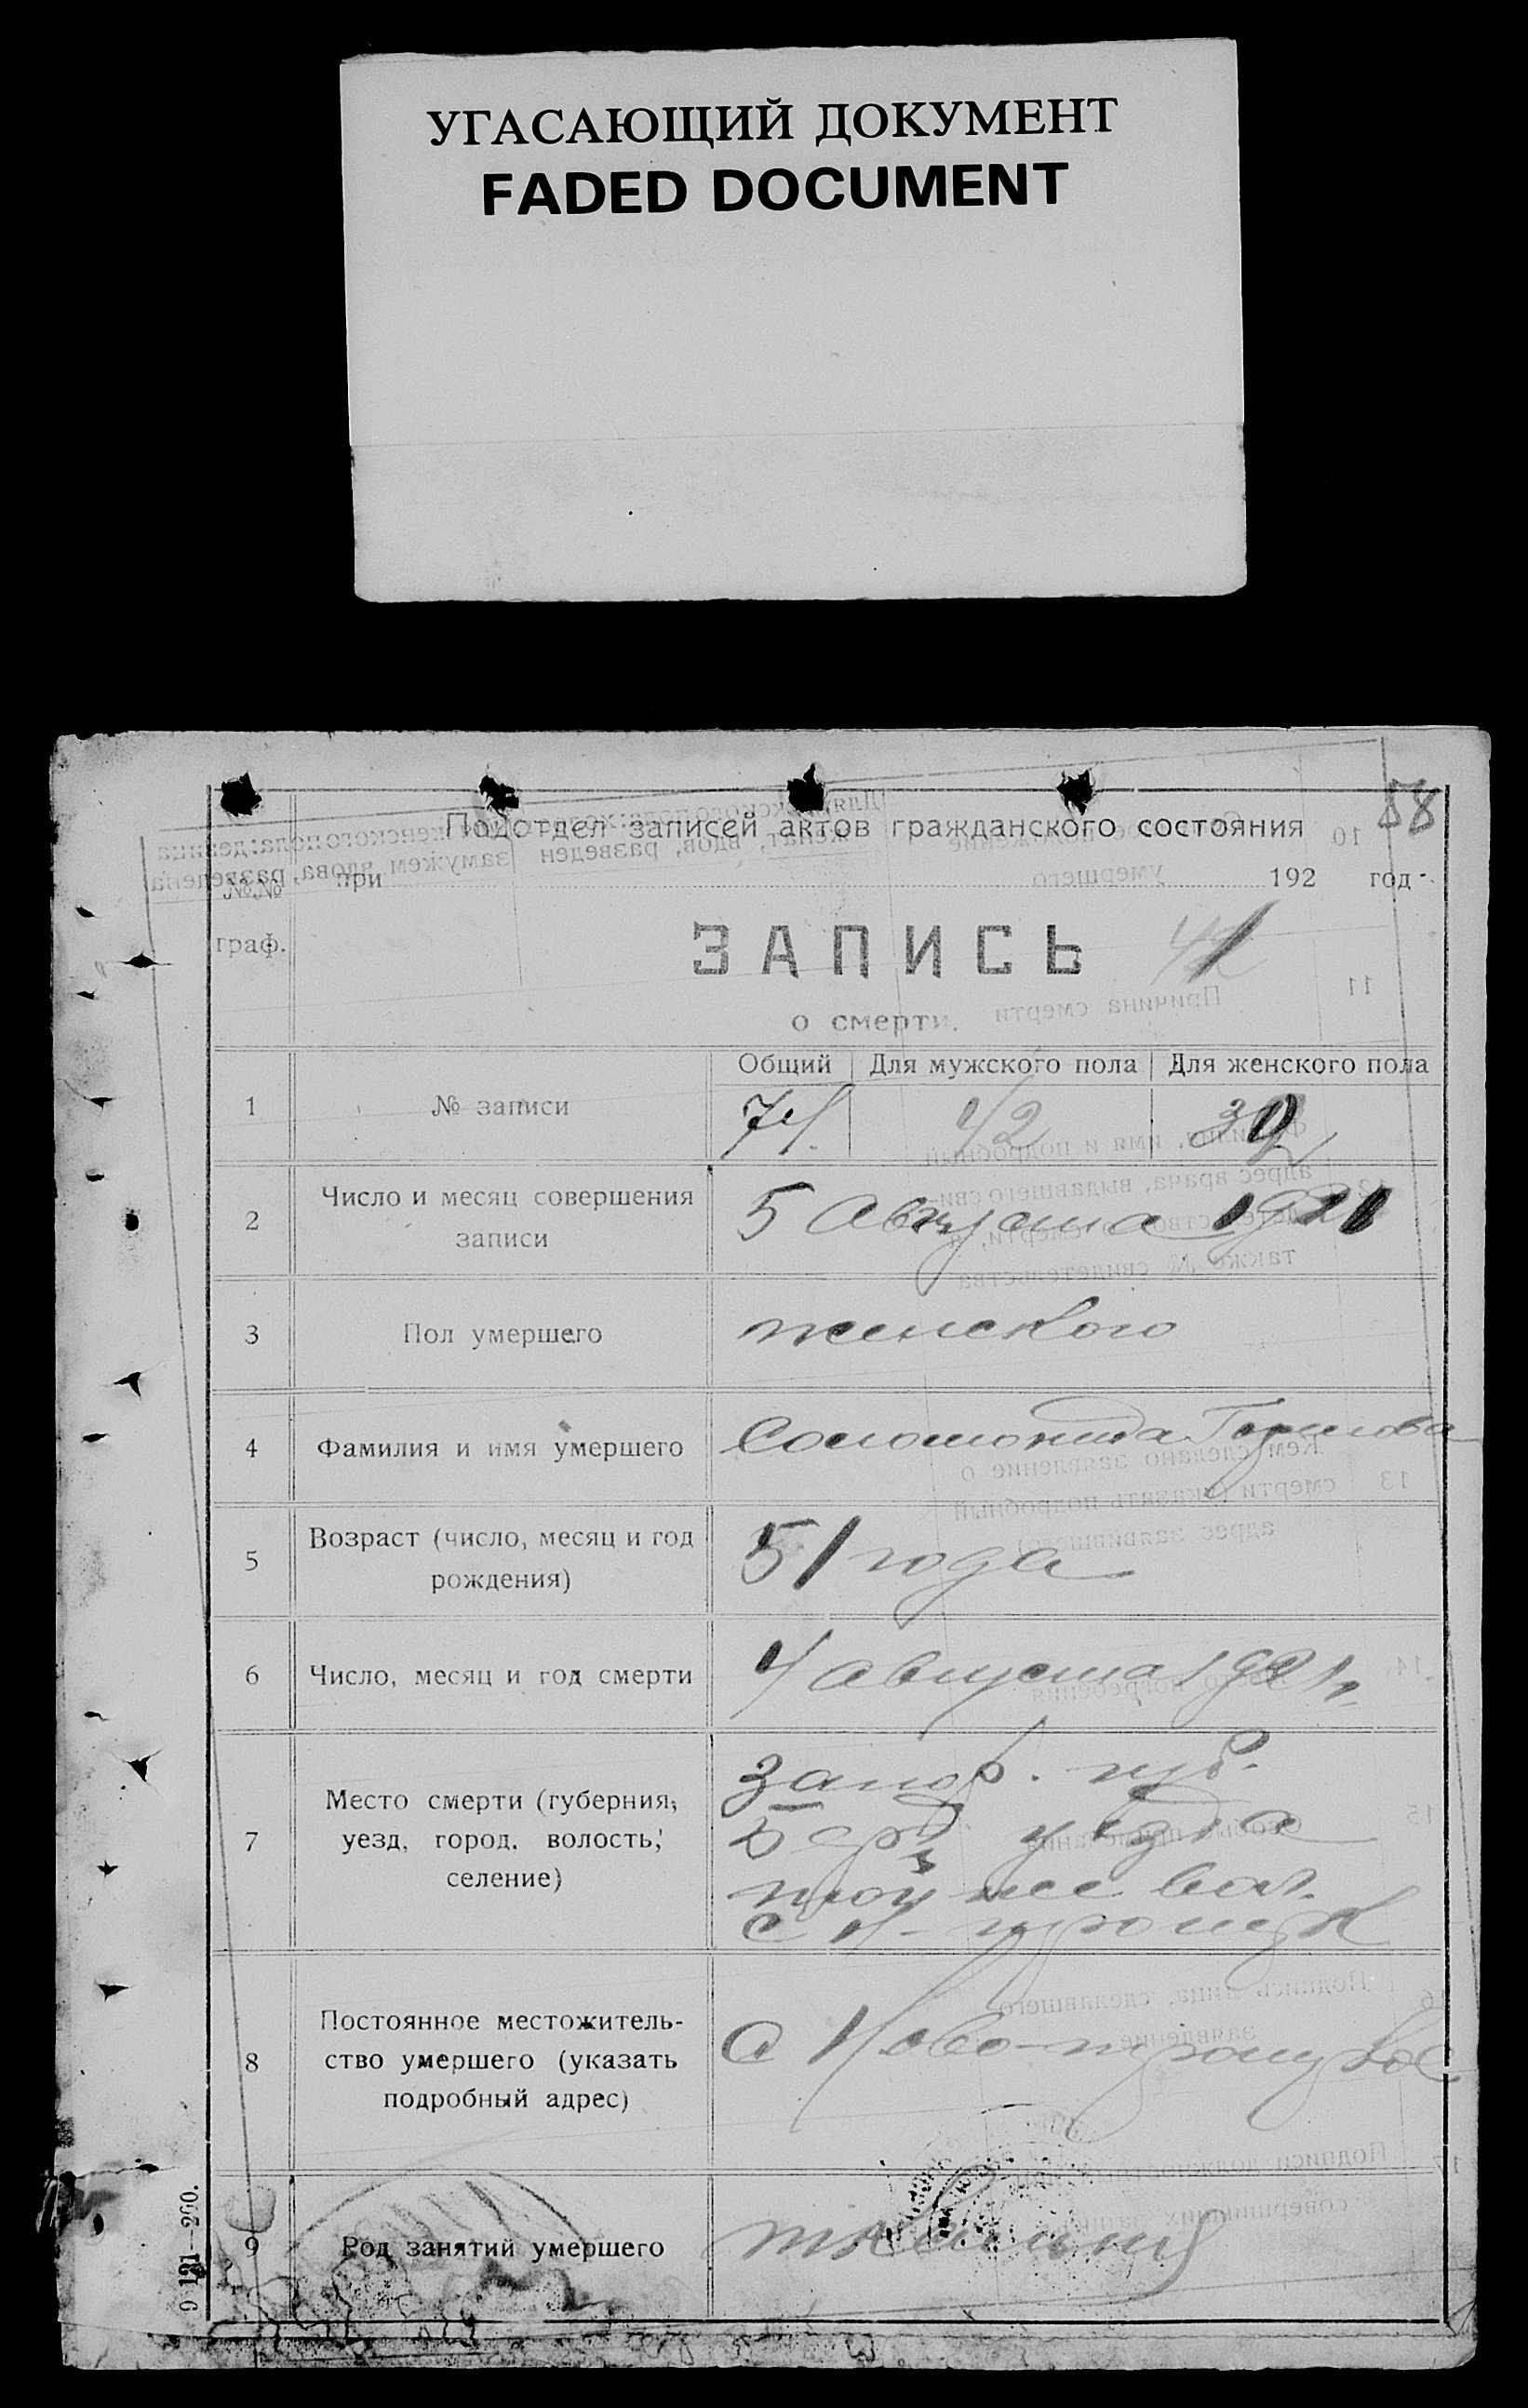 УГАСАЮЩИЙ ДОКУМЕНТ
FADED DOCUMENT
58
Подотдел записей актов гражданского состояния
№№ при 192 год
граф.
ЗАПИСЬ
о смерти.
Общий Для мужского пола Для женского пола
1 № записи 74 42
2 Число и месяц совершения записи 5 Августа 1921
3 Пол умершего женского
4 Фамилия и имя умершего
5 Возраст (число, месяц и год рождения) 51 года
6 Число, месяц и год смерти 4 августа 1921 г.
7 Место смерти (губерния, уезд, город, волость, селение) Запор. губ.
Берд. уезда
той же вол.
с Н-троицк
8 Постоянное местожительство умершего (указать подробный адрес) С Ново-троицкое
9 Род занятий умершего
9 121—200.